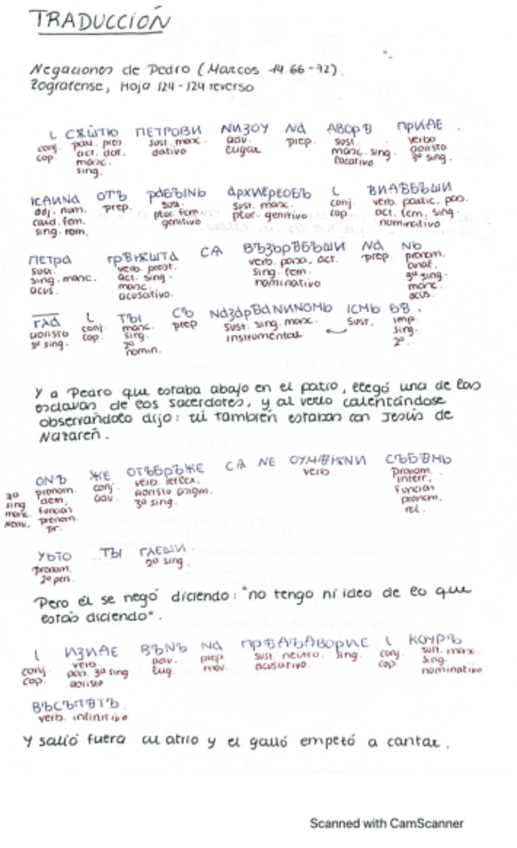 TRADUCCIÓN
Negaciones de Pedro (Marcos 14 66-72).
Zogratense, Hoja 124-124 reverso
ПЕТРОВИ NИЗОУ Nа АВОРѢ ПРИДЕ
conj. cop. part. pres. act. dat. masc. sing. sust. masc. dativo adv. lugar prep. sust. masc. sing. locativo verbo aoristo 3ª sing.
ѤДИNа ОТЪ РаБЪІNЬ аРХИЕРЕОВЪ
adj. num. card. fem. sing. nom. prep. sust. plur. fem. genitivo sust. masc. plur. genitivo conj. cop. verb. partic. pas. act. fem. sing. nominativo
ПЕТРа ГРѢѬШТА СА ВЪЗЬРѢВЪШИ Nа NЬ
sust. sing. masc. acus. verb. prest. act. sing. masc. acusativo verb. pasa. act. sing. fem. nominativo prep. pronom. anaf. 3ª sing. masc. acus.
ГЛа ТЫ СЪ NаЗаРѢаNИNОМЬ ІСМЬ БѢ.
aoristo 3ª sing. conj. cop. masc. sing. 2ª nomin. prep sust. sing. masc. instrumental sust. imp. sing. 2ª
Y a Pedro que estaba abajo en el patio, llegó una de las
esclavas de los sacerdotes, y al verlo calentándose
observándolo dijo: tú también estabas con Jesús de
Nazareñ.
ОNЪ ЖЕ ОТЪВРЬЖЕ СА NЕ ОУМѢѬNИ СЪВѢМЬ
3ª sing masc. nomi. pronom. dem. función pronom. pr. conj. adv. verb. reflex. aoristo asigm. 3ª sing. verb. pronom. interr. función pronom. rel.
ЧЬТО ТЫ ГЛЕШИ.
pronom. 2ª pers. 2ª sing.
Pero él se negó diciendo: "no tengo ni idea de lo que
estás diciendo".
ИЗИДЕ ВЪNЬ Nа ПРѢДЪДВОРИЕ КОУРЪ
conj. cop. verb. pas. 3ª sing aoristo adv. lug. prep mov. sust. neutro. sing. acusativo. conj. cop. sust. masc. sing. nominativo
ВЪСЪПѢТЪ.
verb. infinitivo
Y salió fuera al atrio y el galló empetó a cantar.
Scanned with CamScanner